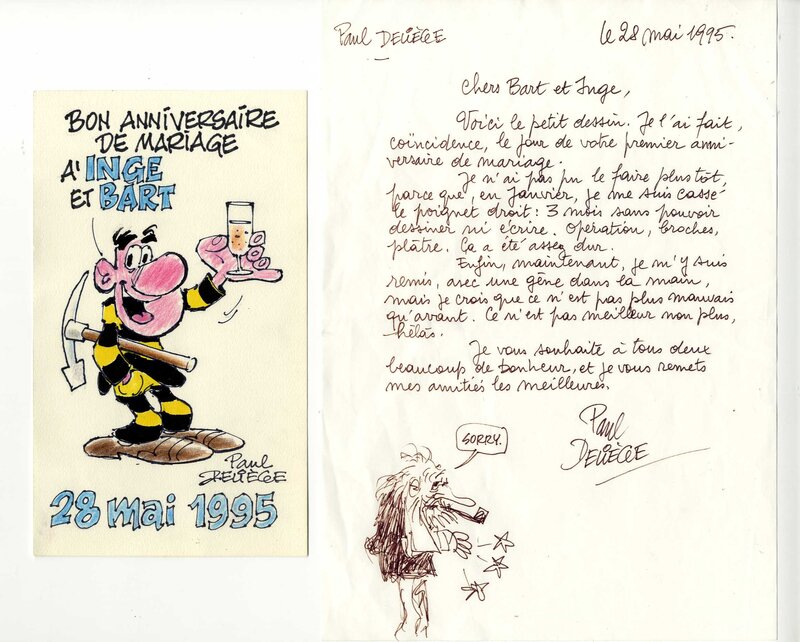 BON ANNIVERSAIRE
DE MARIAGE
A' INGE
ET BART
Paul
DELIÈGE
28 mai 1995
Paul DELIÈGE
le 28 mai 1995.
Chers Bart et Inge,
Voici le petit dessin. Je l'ai fait,
coïncidence, le jour de votre premier anni-
versaire de mariage.
Je n'ai pas pu le faire plus tôt,
parce que, en Janvier, je me suis cassé
le poignet droit : 3 mois sans pouvoir
dessiner ni écrire. Opération, broches,
plâtre. Ca a été assez dur.
Enfin, maintenant, je m'y suis
remis, avec une gêne dans la main,
mais je crois que ce n'est pas plus mauvais
qu'avant. Ce n'est pas meilleur non plus,
hélas.
Je vous souhaite à tous deux
beaucoup de bonheur, et je vous remets
mes amitiés les meilleures.
Paul
DELIÈGE
SORRY.